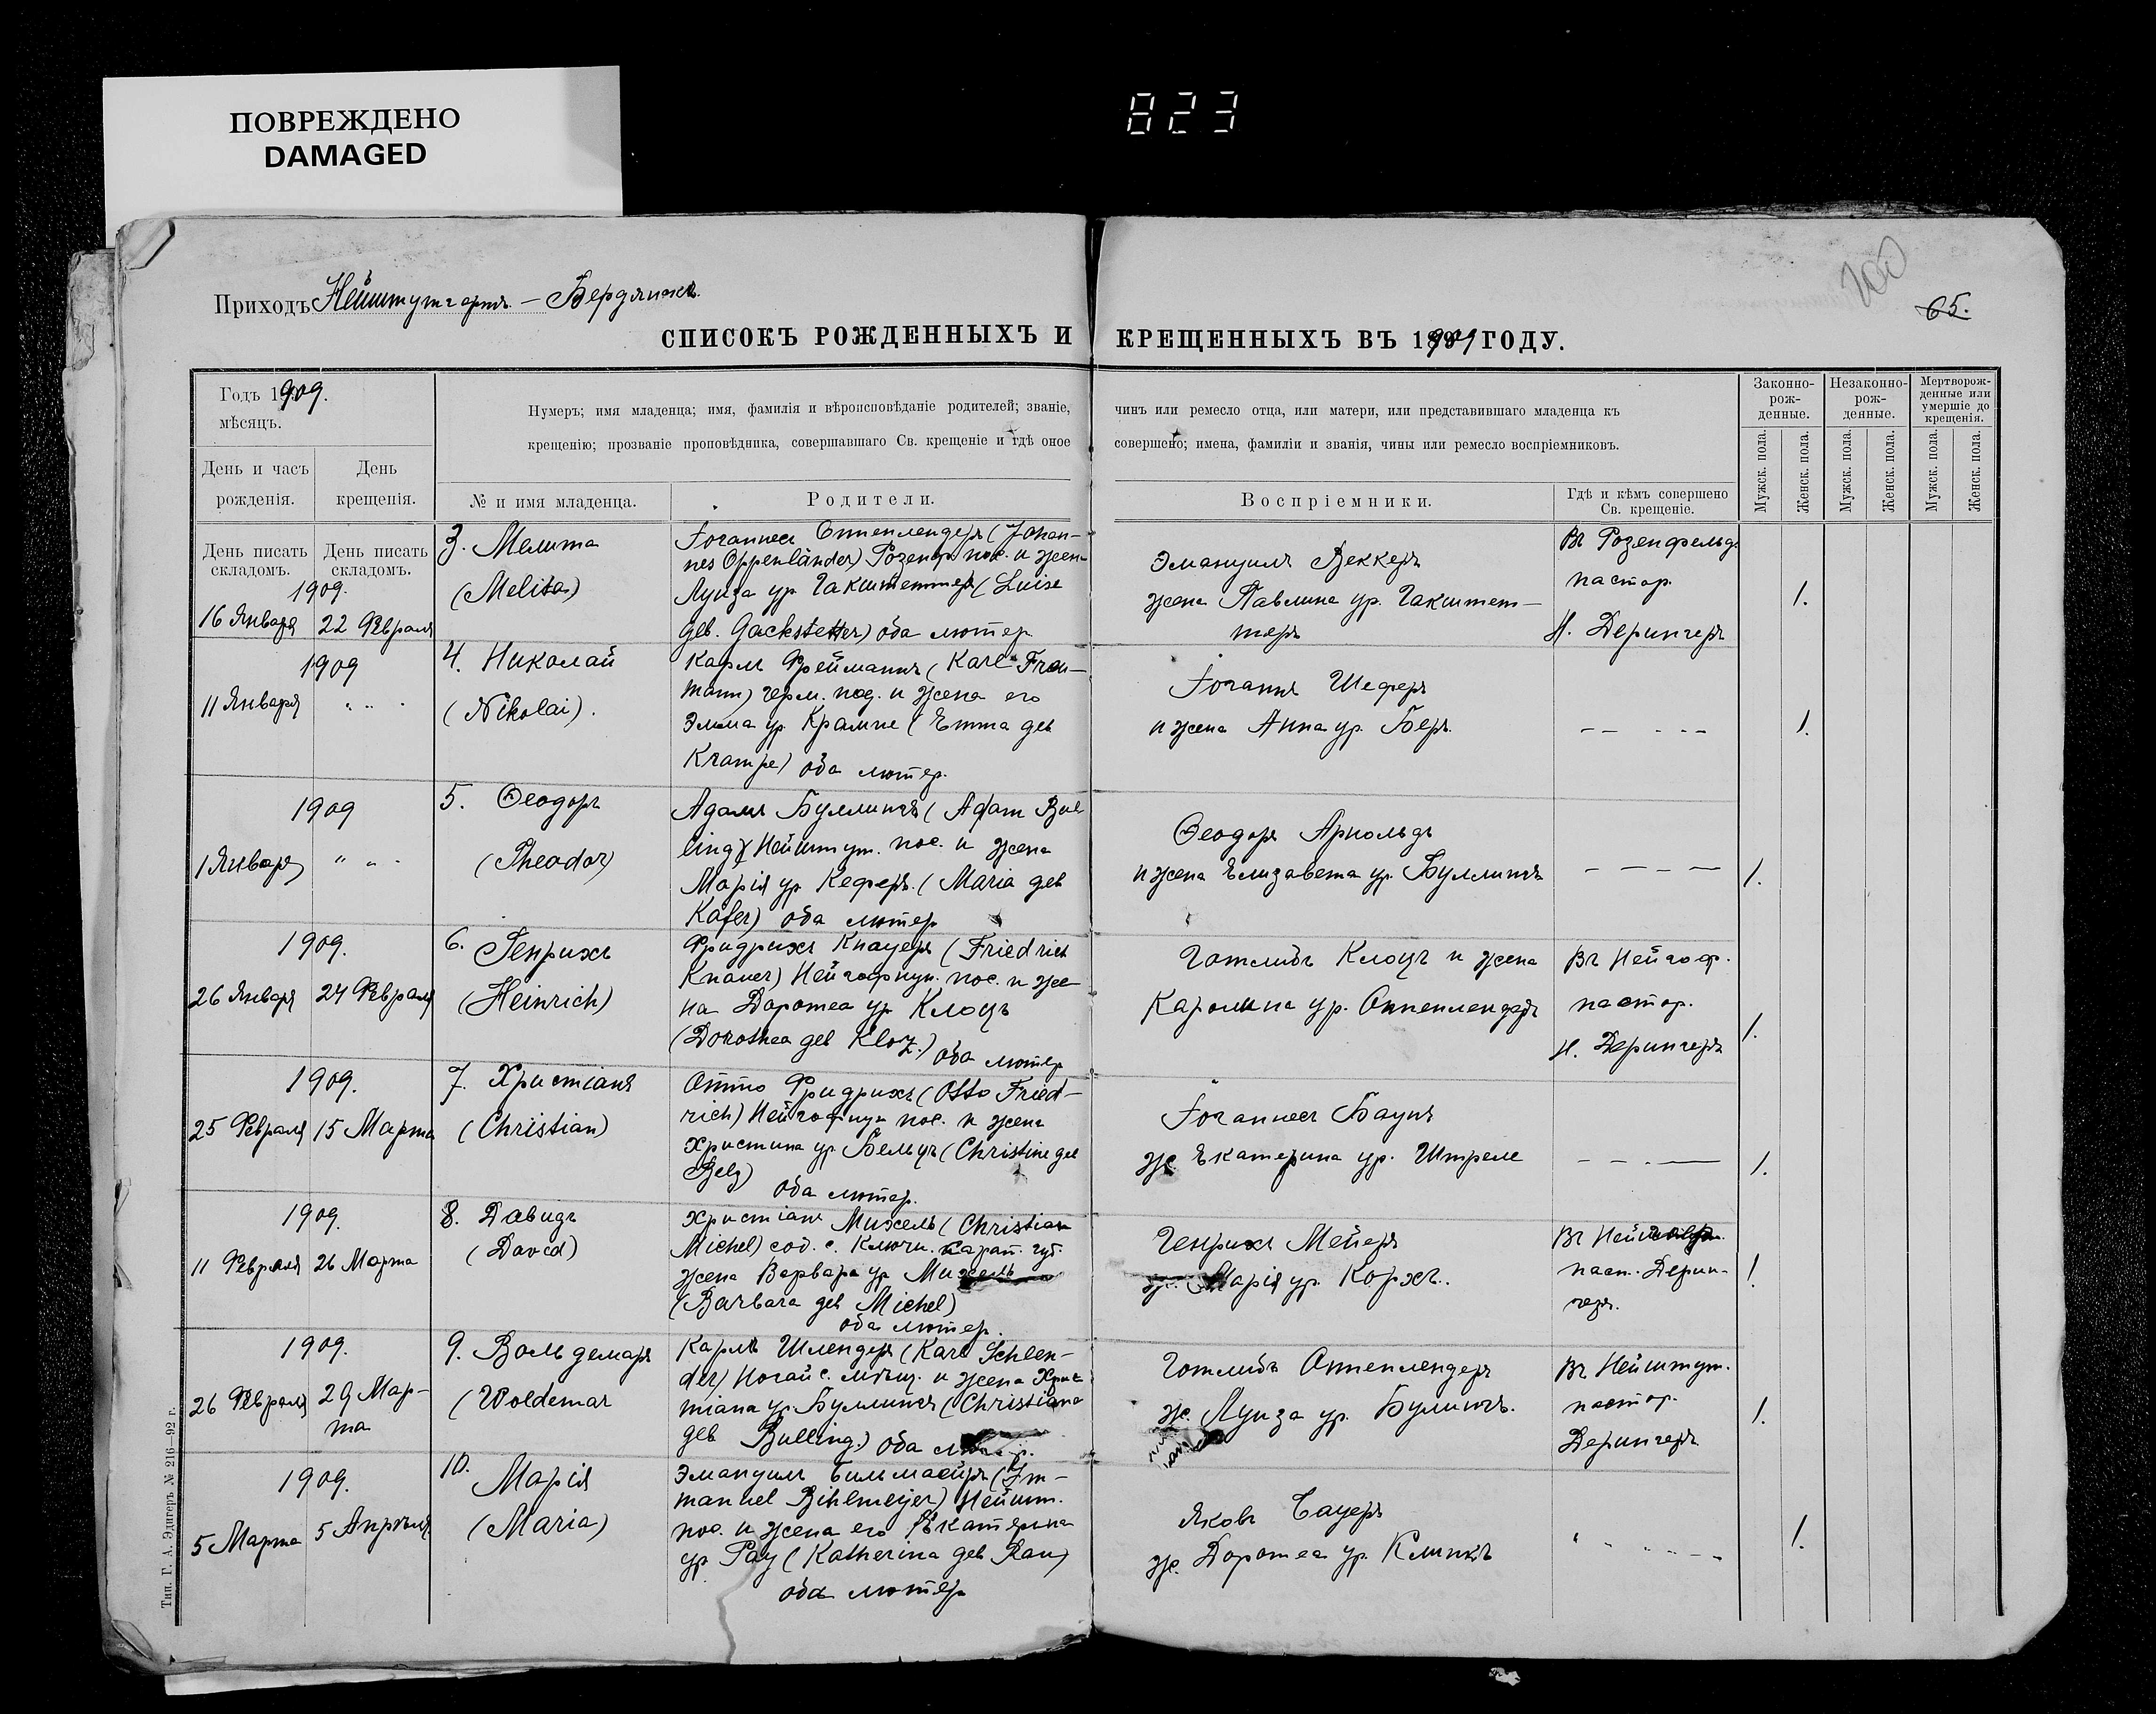 ПОВРЕЖДЕНО
DAMAGED
823
Приходъ Нейштутгартъ – Бердянскъ.
65.
СПИСОКЪ РОЖДЕННЫХЪ И КРЕЩЕННЫХЪ ВЪ 1909 ГОДУ.
Годъ 1909.
мѣсяцъ.
Нумеръ; имя младенца; имя, фамилія и вѣроисповѣданіе родителей; званіе, чинъ или ремесло отца, или матери, или представившаго младенца къ
крещенію; прозваніе проповѣдника, совершавшаго Св. крещеніе и гдѣ оное совершено; имена, фамиліи и званія, чины или ремесло воспріемниковъ.
Законно-
рож-
денные.
Незаконно-
рож-
денные.
Мертворож-
денные или
умершіе до
крещенія.
День и часъ
рожденія.
День
крещенія.
№ и имя младенца.
Родители.
Воспріемники.
Гдѣ и кѣмъ совершено
Св. крещеніе.
Мужск. пола.
Женск. пола.
Мужск. пола.
Женск. пола.
Мужск. пола.
Женск. пола.
День писать
складомъ.
День писать
складомъ.
1909.
16 Января
22 Февраля
3. Мелита
(Melita)
Іоганнес Оппенлендеръ (Johan-
nes Oppenländer) Розенф. пос. и жена
Луиза ур. Гакштеттеръ (Luise
geb. Gackstetter) оба лютер.
Эмануилъ Веккеръ
жена Павлина ур. Гакштет-
теръ
Въ Розенфельдѣ
пастор.
Н. Дерингеръ
1.
1909
11 Января
" " "
4. Николай
(Nikolai).
Карлъ Фрейманнъ (Karl Frei-
mann) герм. под. и жена его
Эмма ур. Крампе (Emma geb
Krampe) оба лютер.
Іоганнъ Шеферъ
и жена Анна ур. Беръ.
— — - - -
1.
1909
1 Января
" " "
5. Ѳеодоръ
(Theodor)
Адамъ Буллингъ (Adam Bul
ling) Нейштут. пос. и жена
Марія ур. Кеферъ. (Maria geb
Käfer) оба лютер
Ѳеодоръ Арнольдъ
и жена Елизавета ур. Буллингъ
— — — —
1.
1909.
26 Января
24 Февраля
6. Генрихъ
(Heinrich)
Фридрихъ Кнауеръ (Friedrich
Knauer) Нейгофнун. пос. и же-
на Доротеа ур Клоцъ
(Dorothea geb Kloz.) оба лютер
Готлибъ Клоцъ и жена
Каролина ур. Оппенлендеръ
Въ Нейгоф.
пастор.
Н. Дерингеръ
1.
1909.
25 Февраля
15 Марта
7. Христіанъ
(Christian)
Отто Фридрихъ (Otto Fried-
rich) Нейгофнун пос. и жена
Христина ур. Бельцъ (Christine geb
Belz) оба лютер.
Іоганнес Баунъ
ж. Екатерина ур. Штреле
— — - —
1.
1909.
11 Февраля
26 Марта
8. Давидъ
(David)
Христіанъ Михель (Christian
Michel) сод. с. Ключи. Сарат. губ.
жена Варвара ур Михель
(Barbara geb Michel)
оба лютер.
Генрихъ Мейеръ
ж. Марія ур. Коржъ.
паст. Дерин-
геръ.
1.
1909.
26 Февраля
29 Мар-
та
9. Вольдемаръ
(Woldemar
Карлъ Шлендеръ (Karl Schlen-
der) Ногайс. мѣщ. и жена Хрис
тіана ур. Буллингъ (Christiana
geb Bulling.) оба
Готлибъ Оппенлендеръ
ж. Луиза ур. Булингъ.
Въ Нейштут.
пастор.
Дерингеръ
1.
1909.
5 Марта
5 Апрѣля
10. Марія
(Maria)
Эмануилъ Бильмаейръ (Im-
manuel Bihlmeijer) Нейшт.
пос. и жена его Екатерина
ур. Рау (Katherina geb Rau)
оба лютер
Яковъ Сауеръ
ж. Доротеа ур. Клинкъ
" - - - - -
1.
Тип. Г. А. Эдигеръ № 216—92 г.